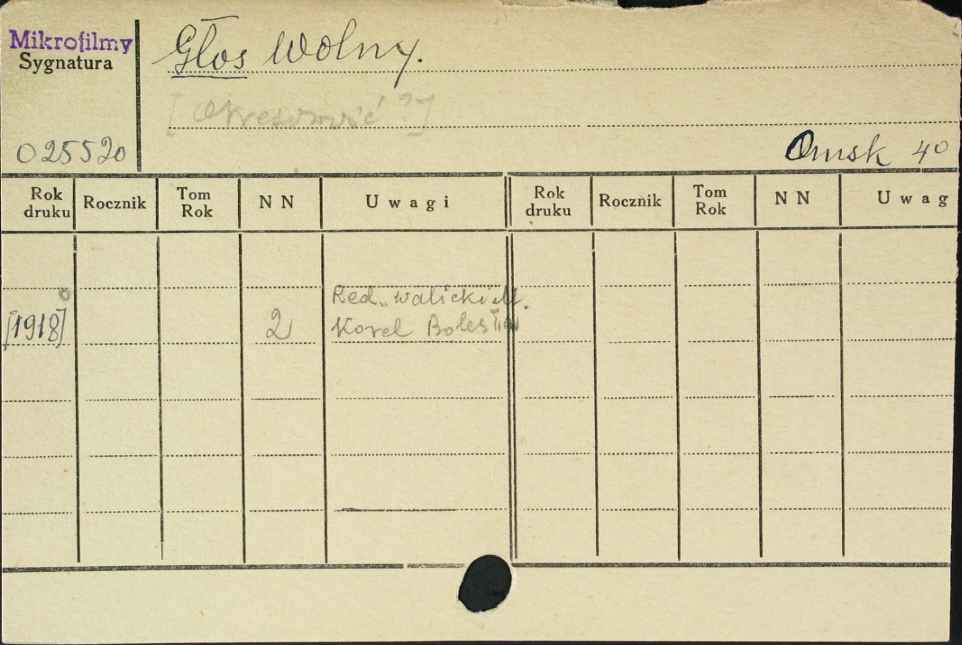 Mikrofilmy
Sygnatura
Głos Wolny.
025520
Omsk 40
Rok druku Rocznik Tom Rok NN Uwagi Rok druku Rocznik Tom Rok NN Uwag
Red. Walicki M.
[1918] 2 Korel Bolesław